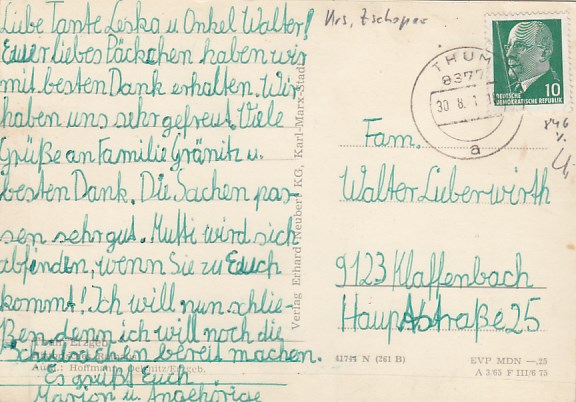 Liebe Tante Leska u. Onkel Walter!
Euer liebes Päckchen haben wir
mit besten Dank erhalten. Wir
haben uns sehr gefreut. Viele
Grüße an Familie Gränitz u.
besten Dank. Die Sachen pas-
sen sehr gut. Mutti wird sich
abfinden, wenn Sie zu Euch
kommt! Ich will nun schlie-
ßen, denn ich will noch die
Schulsachen bereit machen.
Es grüßt Euch
Marion u. Angehörige
Krs. Zschopau
THUM
9377
30.8.
a
10
DEUTSCHE
DEMOKRATISCHE REPUBLIK
Fam.
Walter Lieberwirth
9123 Klaffenbach
Hauptstraße 25
Verlag Erhard Neubert KG, Karl-Marx-Stadt
Erzgeb.
Aufn.: Hoffmann, Oelsnitz/Erzgeb.
41744 N (261 B)
EVP MDN —.25
A 3/65 F III/6 75